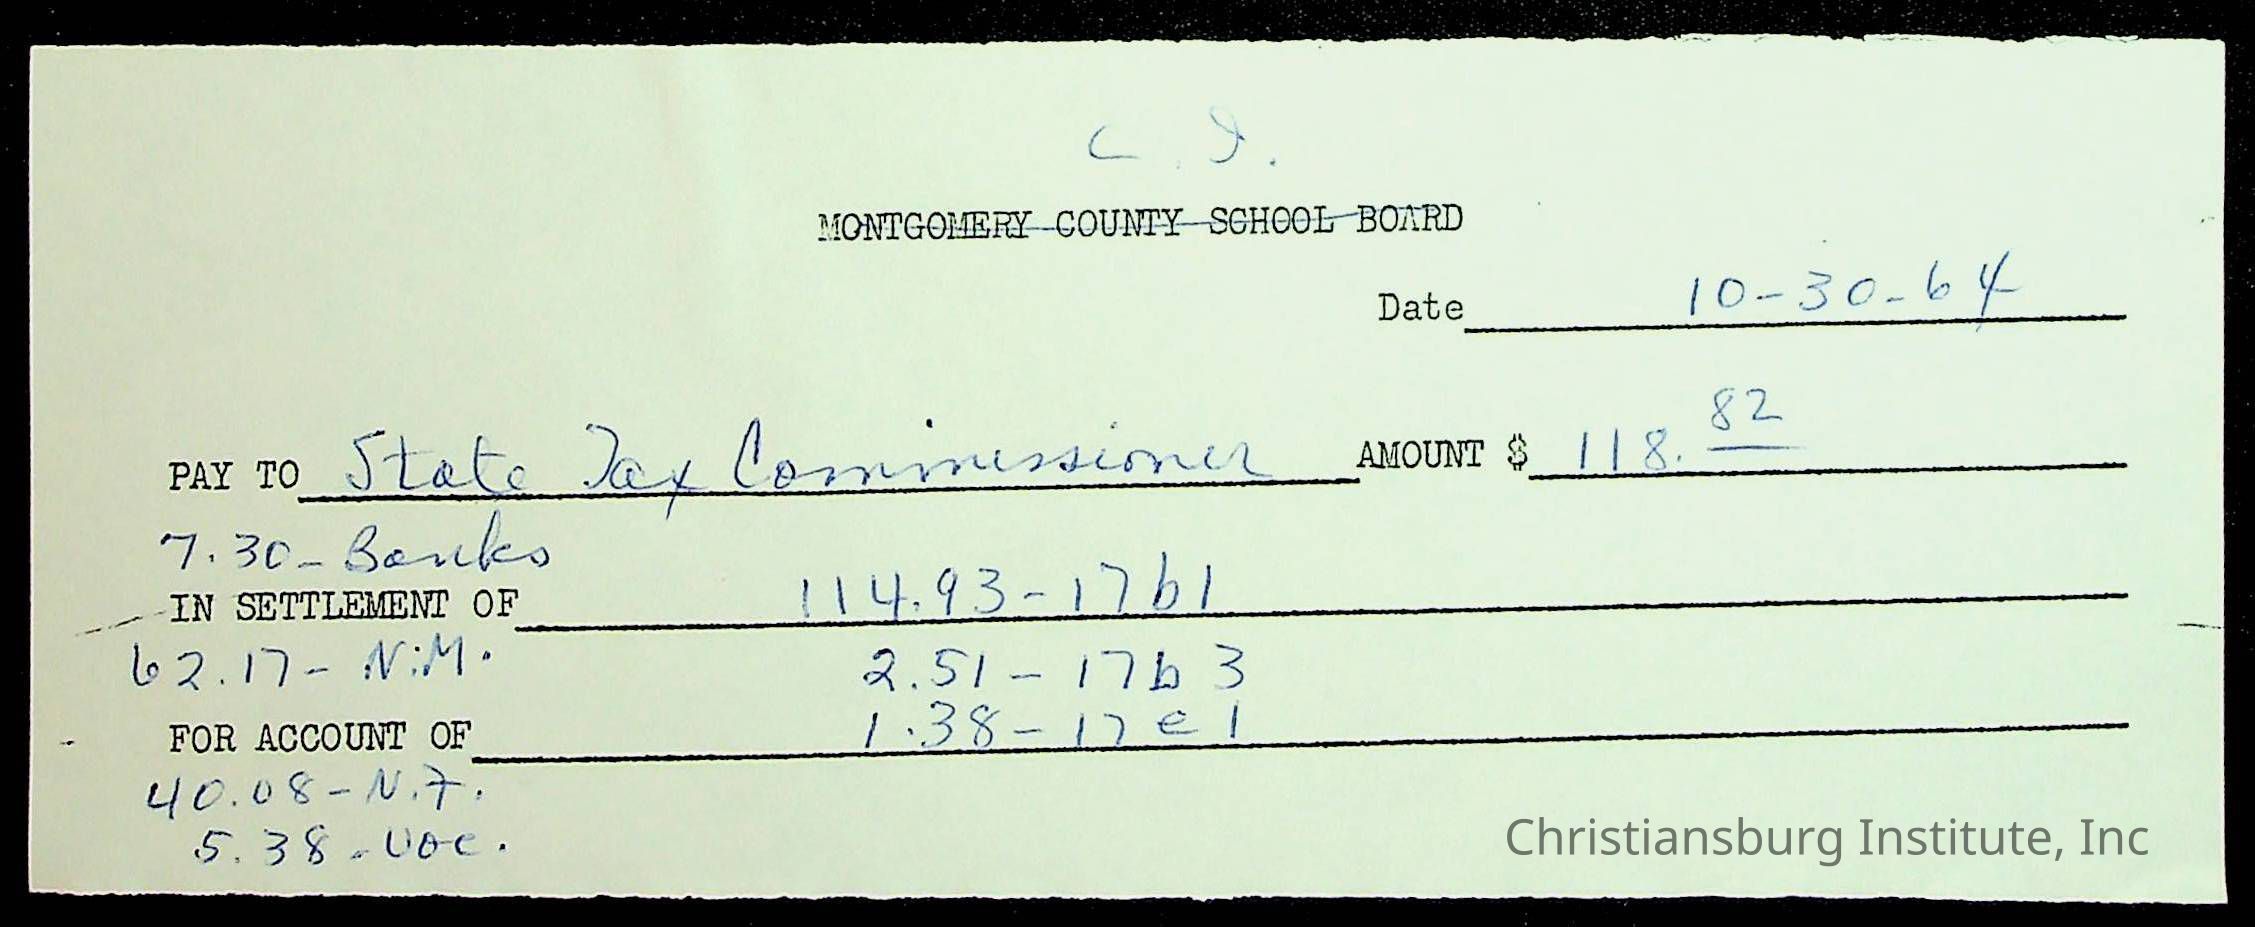 C. I.
MONTGOMERY COUNTY SCHOOL BOARD
Date 10-30-64
PAY TO State Tax Commissioner AMOUNT $ 118.82
7.30-Banks
IN SETTLEMENT OF 114.93-17b1
62.17- N.M. 2.51-17b3
FOR ACCOUNT OF 1.38-17e1
40.08-N.F.
5.38-Voc.
Christiansburg Institute, Inc